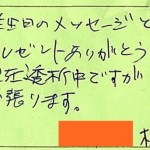 生日のメッセージと
レゼントありがとう
透析中ですが
張ります。